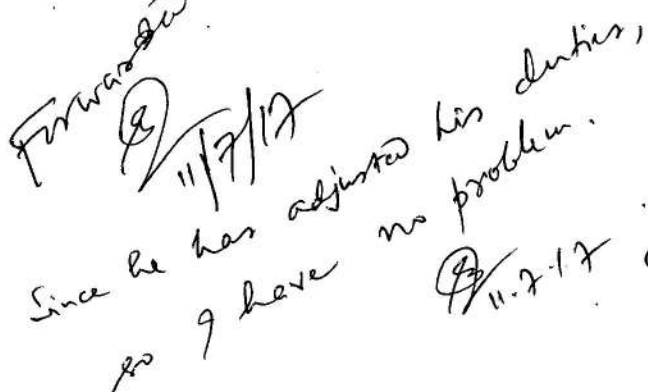 Forwarded
11/7/17
Since he has adjusted his duties,
so I have no problem.
11.7.17